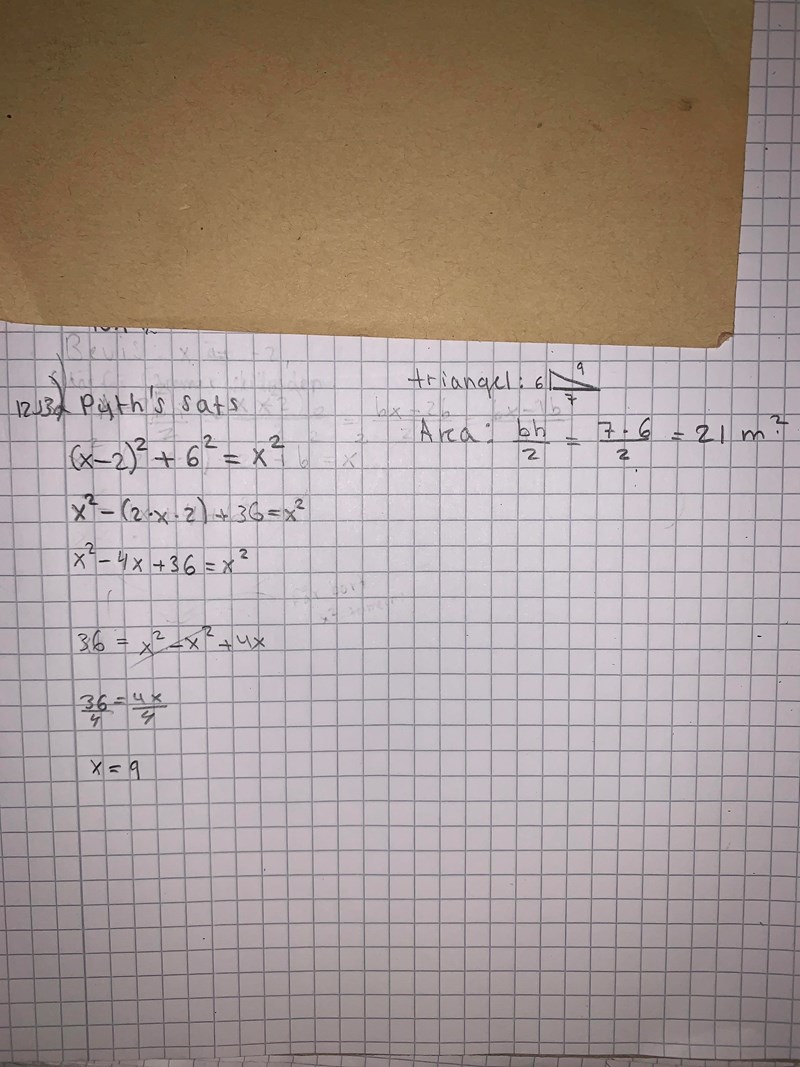 1213a) Pyth's sats
(x-2)² + 6² = x²
x² - (2·x·2) + 36 = x²
x² - 4x + 36 = x²
36 = x² - x² + 4x
36/4 = 4x/4
x = 9
triangel: 6 9 7
Area: bh/2 = 7·6/2 = 21 m²